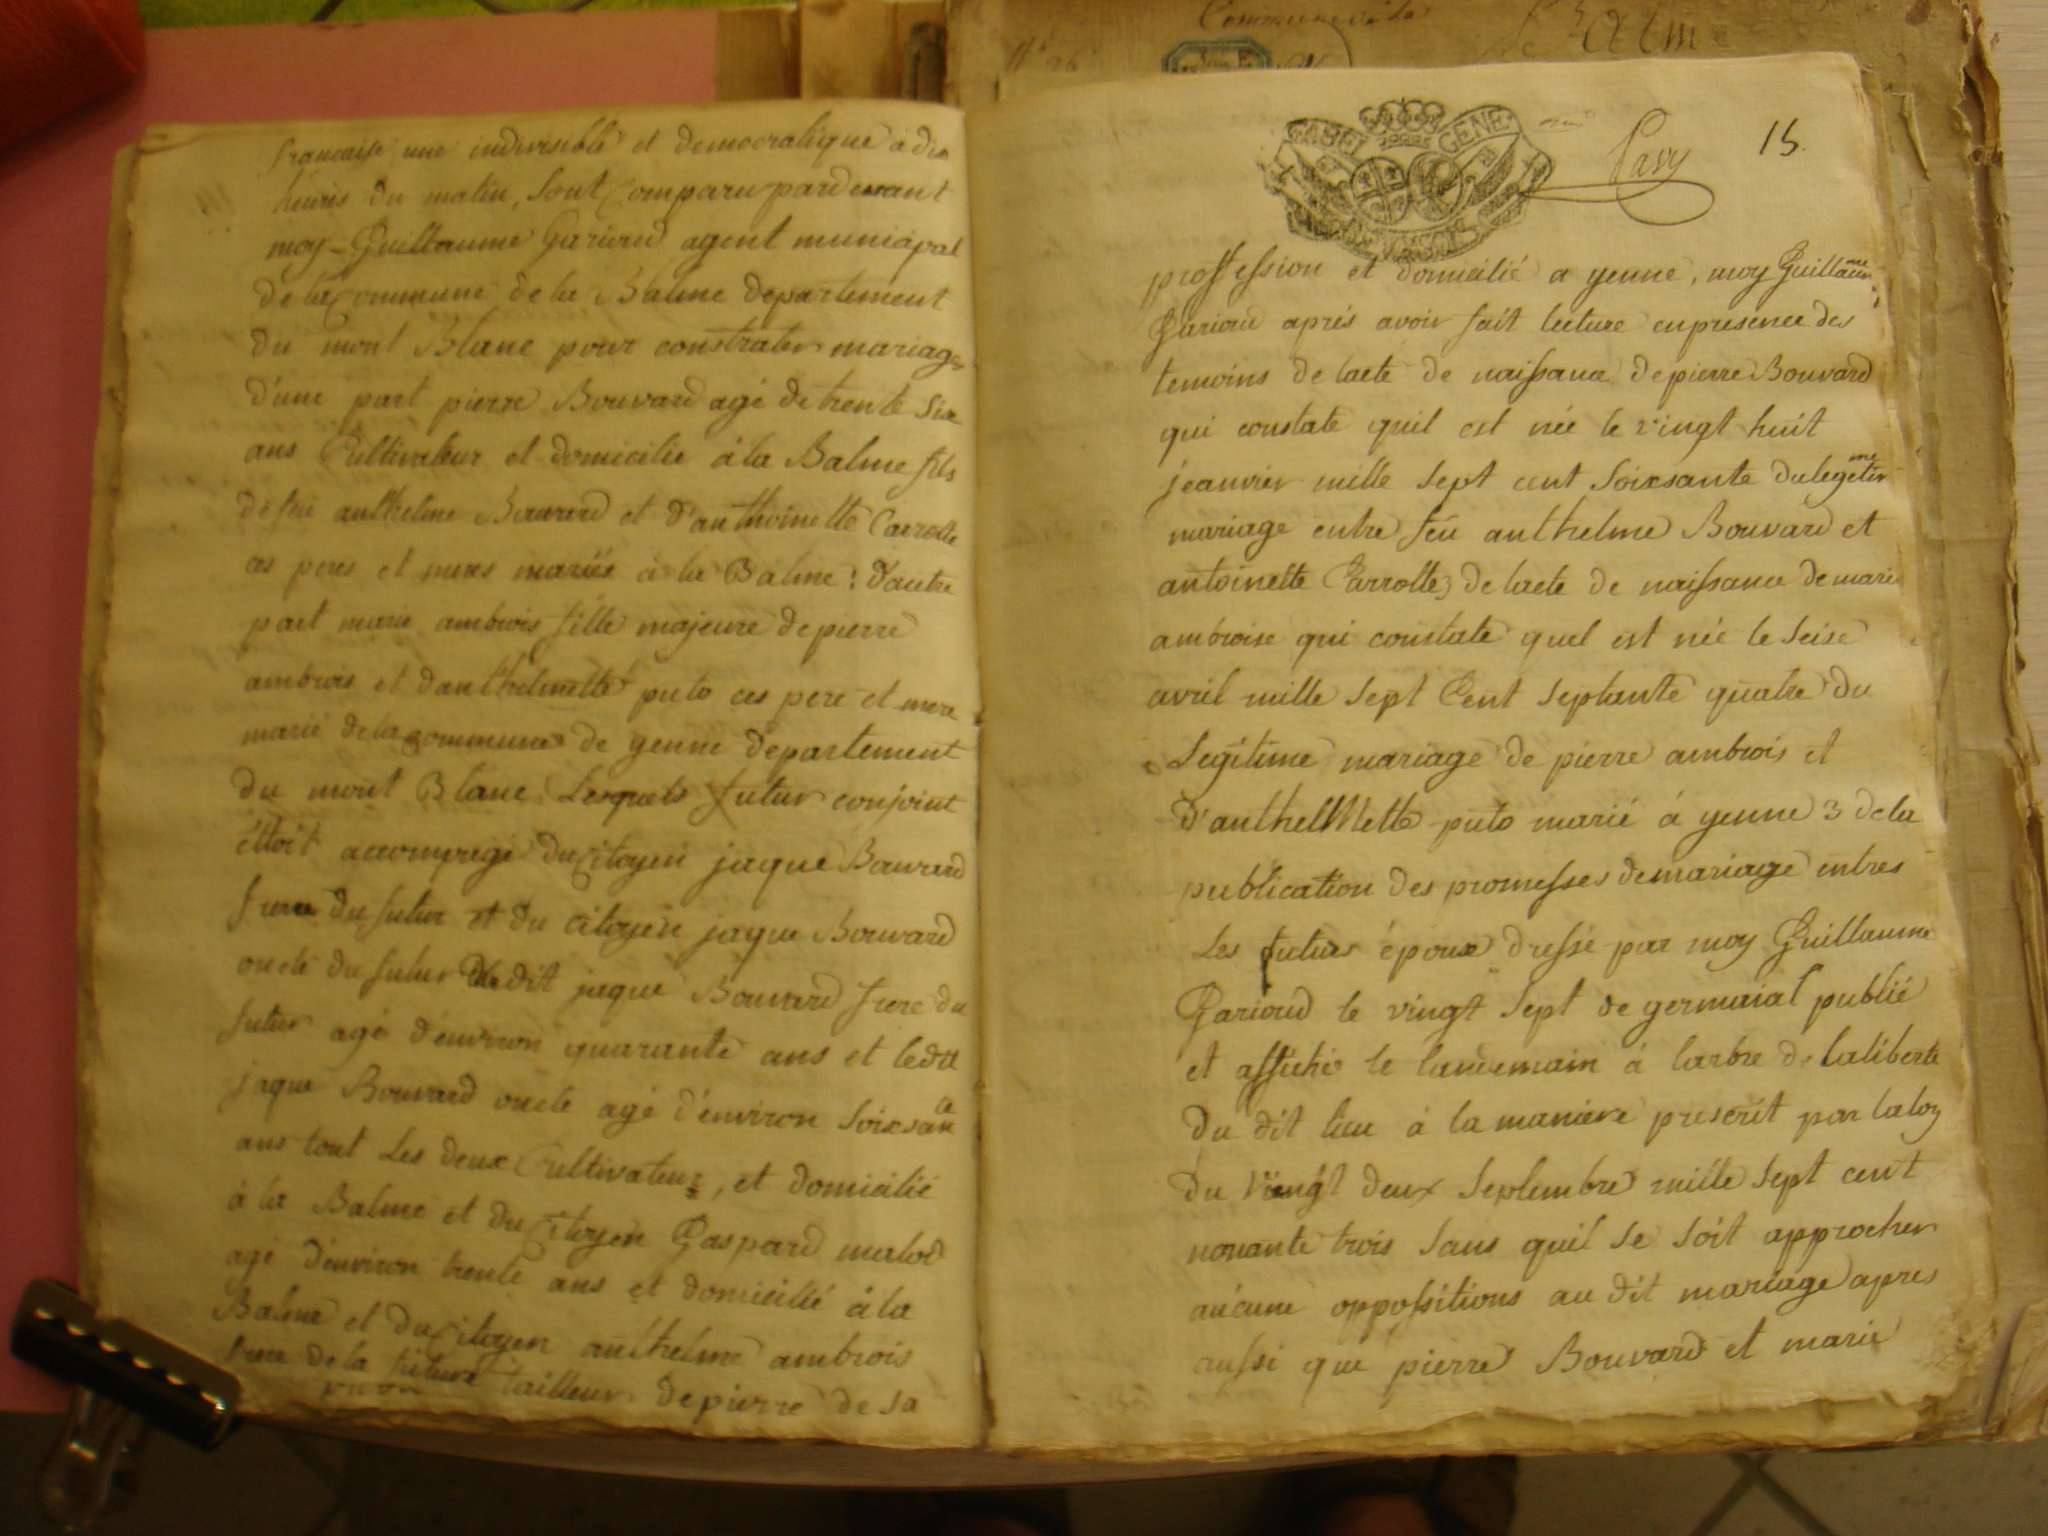 francaise une indivisible et democratique à dix
heures du matin, sont Comparu pardevant
moy Guillaume Garioud agent municipal
de la Commune de la Balme departement
du mont Blanc pour constrater mariage
d'une part pierre Bouvard agé de trente six
ans Cultivateur et domicilié à la Balme fils
de feu anthelme Bouvard et d'anthoinette Carrotte
ces peres et meres mariés à la Balme : d'autre
part marie ambrois fille majeure de pierre
ambrois et danthelmette puto ces pere et mere
marié de la commune de yenne departement
du mont Blanc Lesquels futur conjoint
étoit accompagé du Citoyen jaque Bouvard
frere du futur et du citoyen jaque Bouvard
oncle du futur le dit jaque Bouvard frere du
futur agé d'environ quarante ans et ledit
jaque Bouvard oncle agé d'environ soixsante
ans tout Les deux Cultivateur, et domicilié
à la Balme et du Citoyen Gaspard malod
agé d'environ trente ans et domicilié à la
Balme et du Citoyen anthelme ambrois
frere de la future tailleur de pierre de sa
Commune de la
Balme
15.
proffession et domicilié a yenne, moy Guillaume
Garioud aprés avoir fait lecture en presence des
temoins de lacte de naissance de pierre Bouvard
qui constate quil est née le vingt huit
jeanvier mille sept cent soixsante du legetime
mariage entre feu anthelme Bouvard et
antoinette Carrotte 3 de lacte de naissance de marie
ambroise qui constate quel est née le seise
avril mille sept Cent septante quatre du
Legitime mariage de pierre ambrois et
d'anthelMette puto marié á yenne 3 de la
publication des promesses de mariage entres
Les futurs époux dressé par moy Guillaume
Garioud le vingt sept de germaial publié
et affiché le landemain á larbre de laliberte
du dit lieu à la maniere prescrit par la loy
du vingt deux septembre mille sept cent
nonante trois sans quil se soit approcher
aucune oppositions au dit mariage apres
aussi que pierre Bouvard et marie